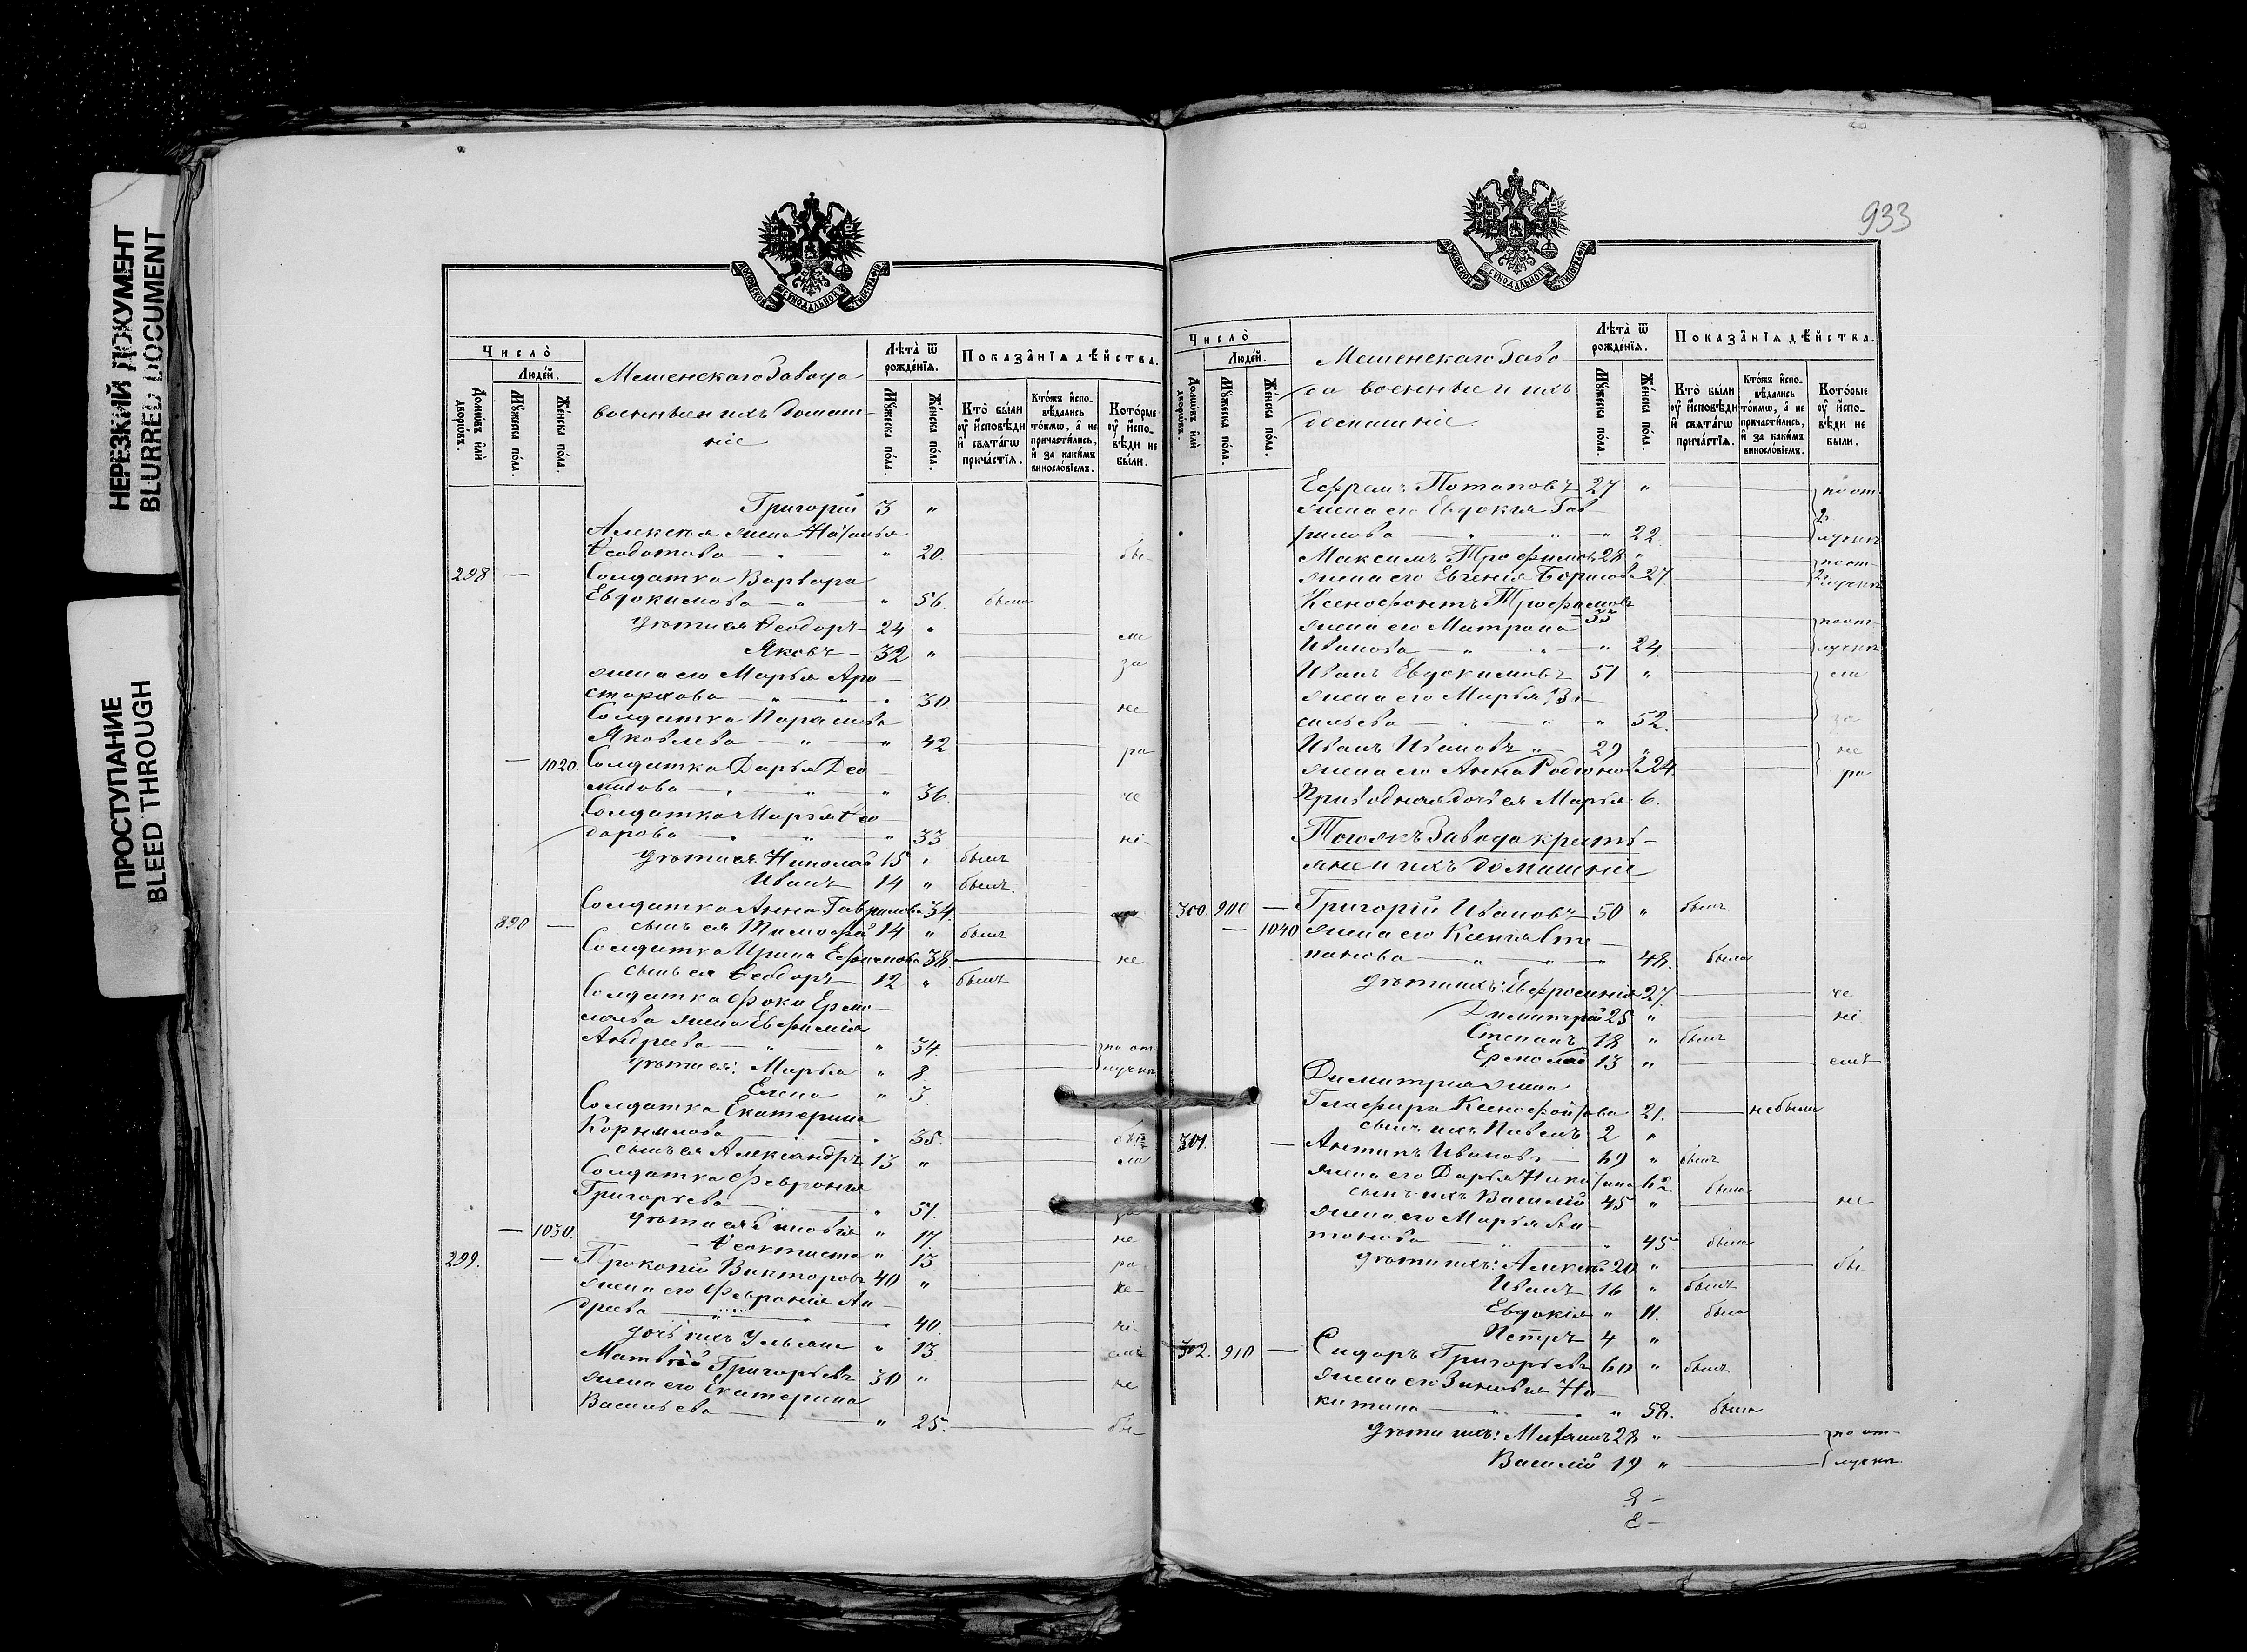 НЕРЕЗКИЙ ДОКУМЕНТ
BLURRED DOCUMENT
ПРОСТУПАНИЕ
BLEED THROUGH
МОСКОВСКОЙ СѴНОДАЛЬНОЙ ТИПОГРАФІИ
Число̀
Людей.
Домѡвъ илѝ дворѡвъ.
Мꙋжеска пола.
Женска пола.
Мешенскаго Завода
военные и ихъ домаш-
ніе
Лѣта̀ ѿ рожденїѧ.
Мꙋжеска пола.
Женска пола.
Показанїѧ дѣйства.
Кто̀ были оу҆ исповѣди и҆ свѧтагѡ причастїѧ.
Ктожъ исповѣдались токмѡ, а҆ не причастились, и҆ за какимъ винословїемъ.
Которые оу҆ исповѣди не были.
Григорій 3 "
Алексѣя жена Наталья
Ѳеодотова — " — " 20. бы-
298 — Солдатка Варвара
Евдокимова — " — " 56. была
дѣти ея Ѳеодоръ 24 "
Яковъ — 32 " за
жена его Марья Ари-
стархова — " — " 30 не
Солдатка Параскева
Яковлева — " — " 42 ра
— 1020. Солдатка Дарья Део-
мидова — " — " 36. че
Солдатка Марѳа Ѳео-
дорова — " — " 33 ні-
дѣти ея Николай 15 " былъ
Иванъ 14 " былъ.
Солдатка Анна Гаврилова 34.
890 — сынъ ея Тимоѳей 14 " былъ
Солдатка Ирина Ефремова 38. не
сынъ ея Ѳеодоръ 12 " былъ
Солдатка Фока Ермо-
лаева жена Евфимія
Андреева — " — " 34. по от-
дѣти ея: Марья " 8. лучкѣ
Елена " 3.
Солдатка Екатерина
Корнилова — " 35. бы
сынъ ея Александръ 13 "
Солдатка Февронія
Григорьева — " 51.
— 1030. дѣти ея Зиновія " 17. не
Ѳеоктиста " 13 ра-
299. — Прокопій Викторовъ 40 " че-
жена его Феврония Ан-
дреева — " 40. ні-
дочь ихъ Ульяна " 13. емъ
Матвѣй Григорьевъ 30 " не
жена его Екатерина
Васильева — " — " 25. бы-
933
МОСКОВСКОЙ СѴНОДАЛЬНОЙ ТИПОГРАФІИ
Число̀
Людей.
Домѡвъ илѝ дворѡвъ.
Мꙋжеска пола.
Женска пола.
Мешенскаго Заво
да военные и ихъ
домашніе
Лѣта̀ ѿ рожденїѧ.
Мꙋжеска пола.
Женска пола.
Показанїѧ дѣйства.
Кто̀ были оу҆ исповѣди и҆ свѧтагѡ причастїѧ.
Ктожъ исповѣдались токмѡ, а҆ не причастились, и҆ за какимъ винословїемъ.
Которые оу҆ исповѣди не были.
Ефремъ Потаповъ 27 " по от-
жена его Евдокія Гав-
рилова — " — " 22. лучкѣ
Максимъ Трофимовъ 28 " по от-
жена его Евгенія Борисова 27. лучкѣ
Ксенофонтъ Трофимовъ
33
жена его Матрона по от-
Иванова — " — " 24. лучкѣ
Иванъ Евдокимовъ 51 "
жена его Марья Ва-
сильева — " — " 52. за
Иванъ Ивановъ " 29 " не
жена его Анна Родіонова 24. ра
Приводная дочь ея Марья 6.
Того жъ Завода кресть-
яне и ихъ домашніе
300. 900 — Григорій Ивановъ 50 " былъ
— 1040 жена его Ксенія Сте-
панова — " — " 48. была
дѣти ихъ: Евфросинія 27. че
Димитрій 25 " ні
Степанъ 18 " былъ
Ермолай 13 " емъ
Димитрія жена
Глафира Ксенофонтова 21. не была
сынъ ихъ Павелъ 2 "
301. — Антипъ Ивановъ — 69 " былъ
жена его Дарья Никитина 62. была
сынъ ихъ Василій 45 " не
жена его Марья Ан-
тонова — " 45 была
дѣти ихъ: Алексѣй 20 " бы-
Иванъ 16 " былъ
Евдокія " 11. была
Петръ 4 "
302. 910 — Сидоръ Григорьевъ 60 " былъ
жена его Зиновія Ни-
китина — " — " 58. была
дѣти ихъ: Михаилъ 28 " по от-
Василій 19 " лучкѣ